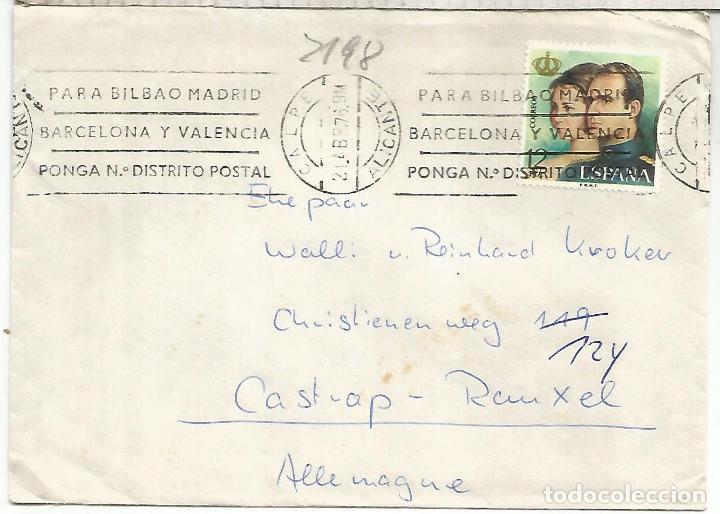 2198
PARA BILBAO MADRID
BARCELONA Y VALENCIA
PONGA N.º DISTRITO POSTAL
CALPE
ALICANTE
PARA BILBAO MADRID
BARCELONA Y VALENCIA
PONGA N.º DISTRITO
CALPE
ALICANTE
CORREOS
12
ESPAÑA
F.N.M.T.
Ehepaar
Walli u. Reinhard Kroker
Christienenweg 119
124
Castrap - Rauxel
Allemagne
todocoleccion